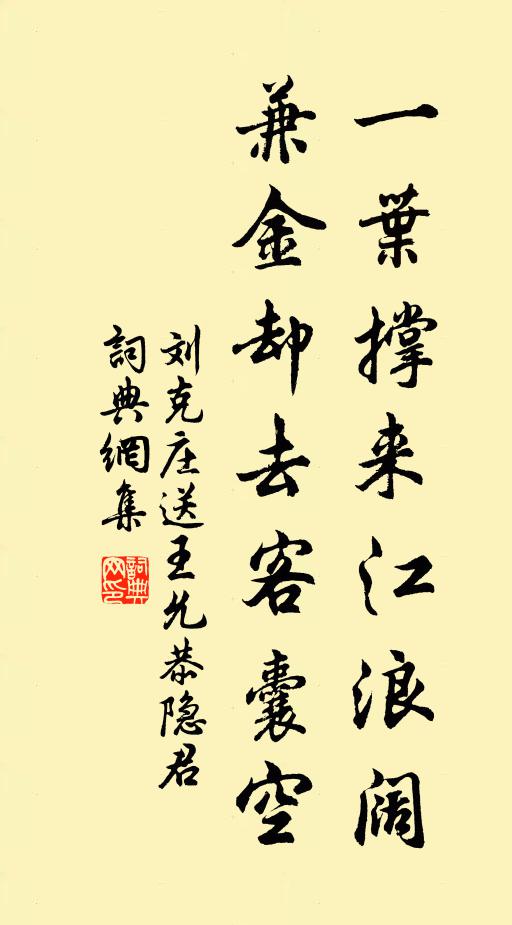 一葉撑来江浪阔
兼金却去客囊空
刘克庄送王允恭隐君
詞典網集
詞典网印